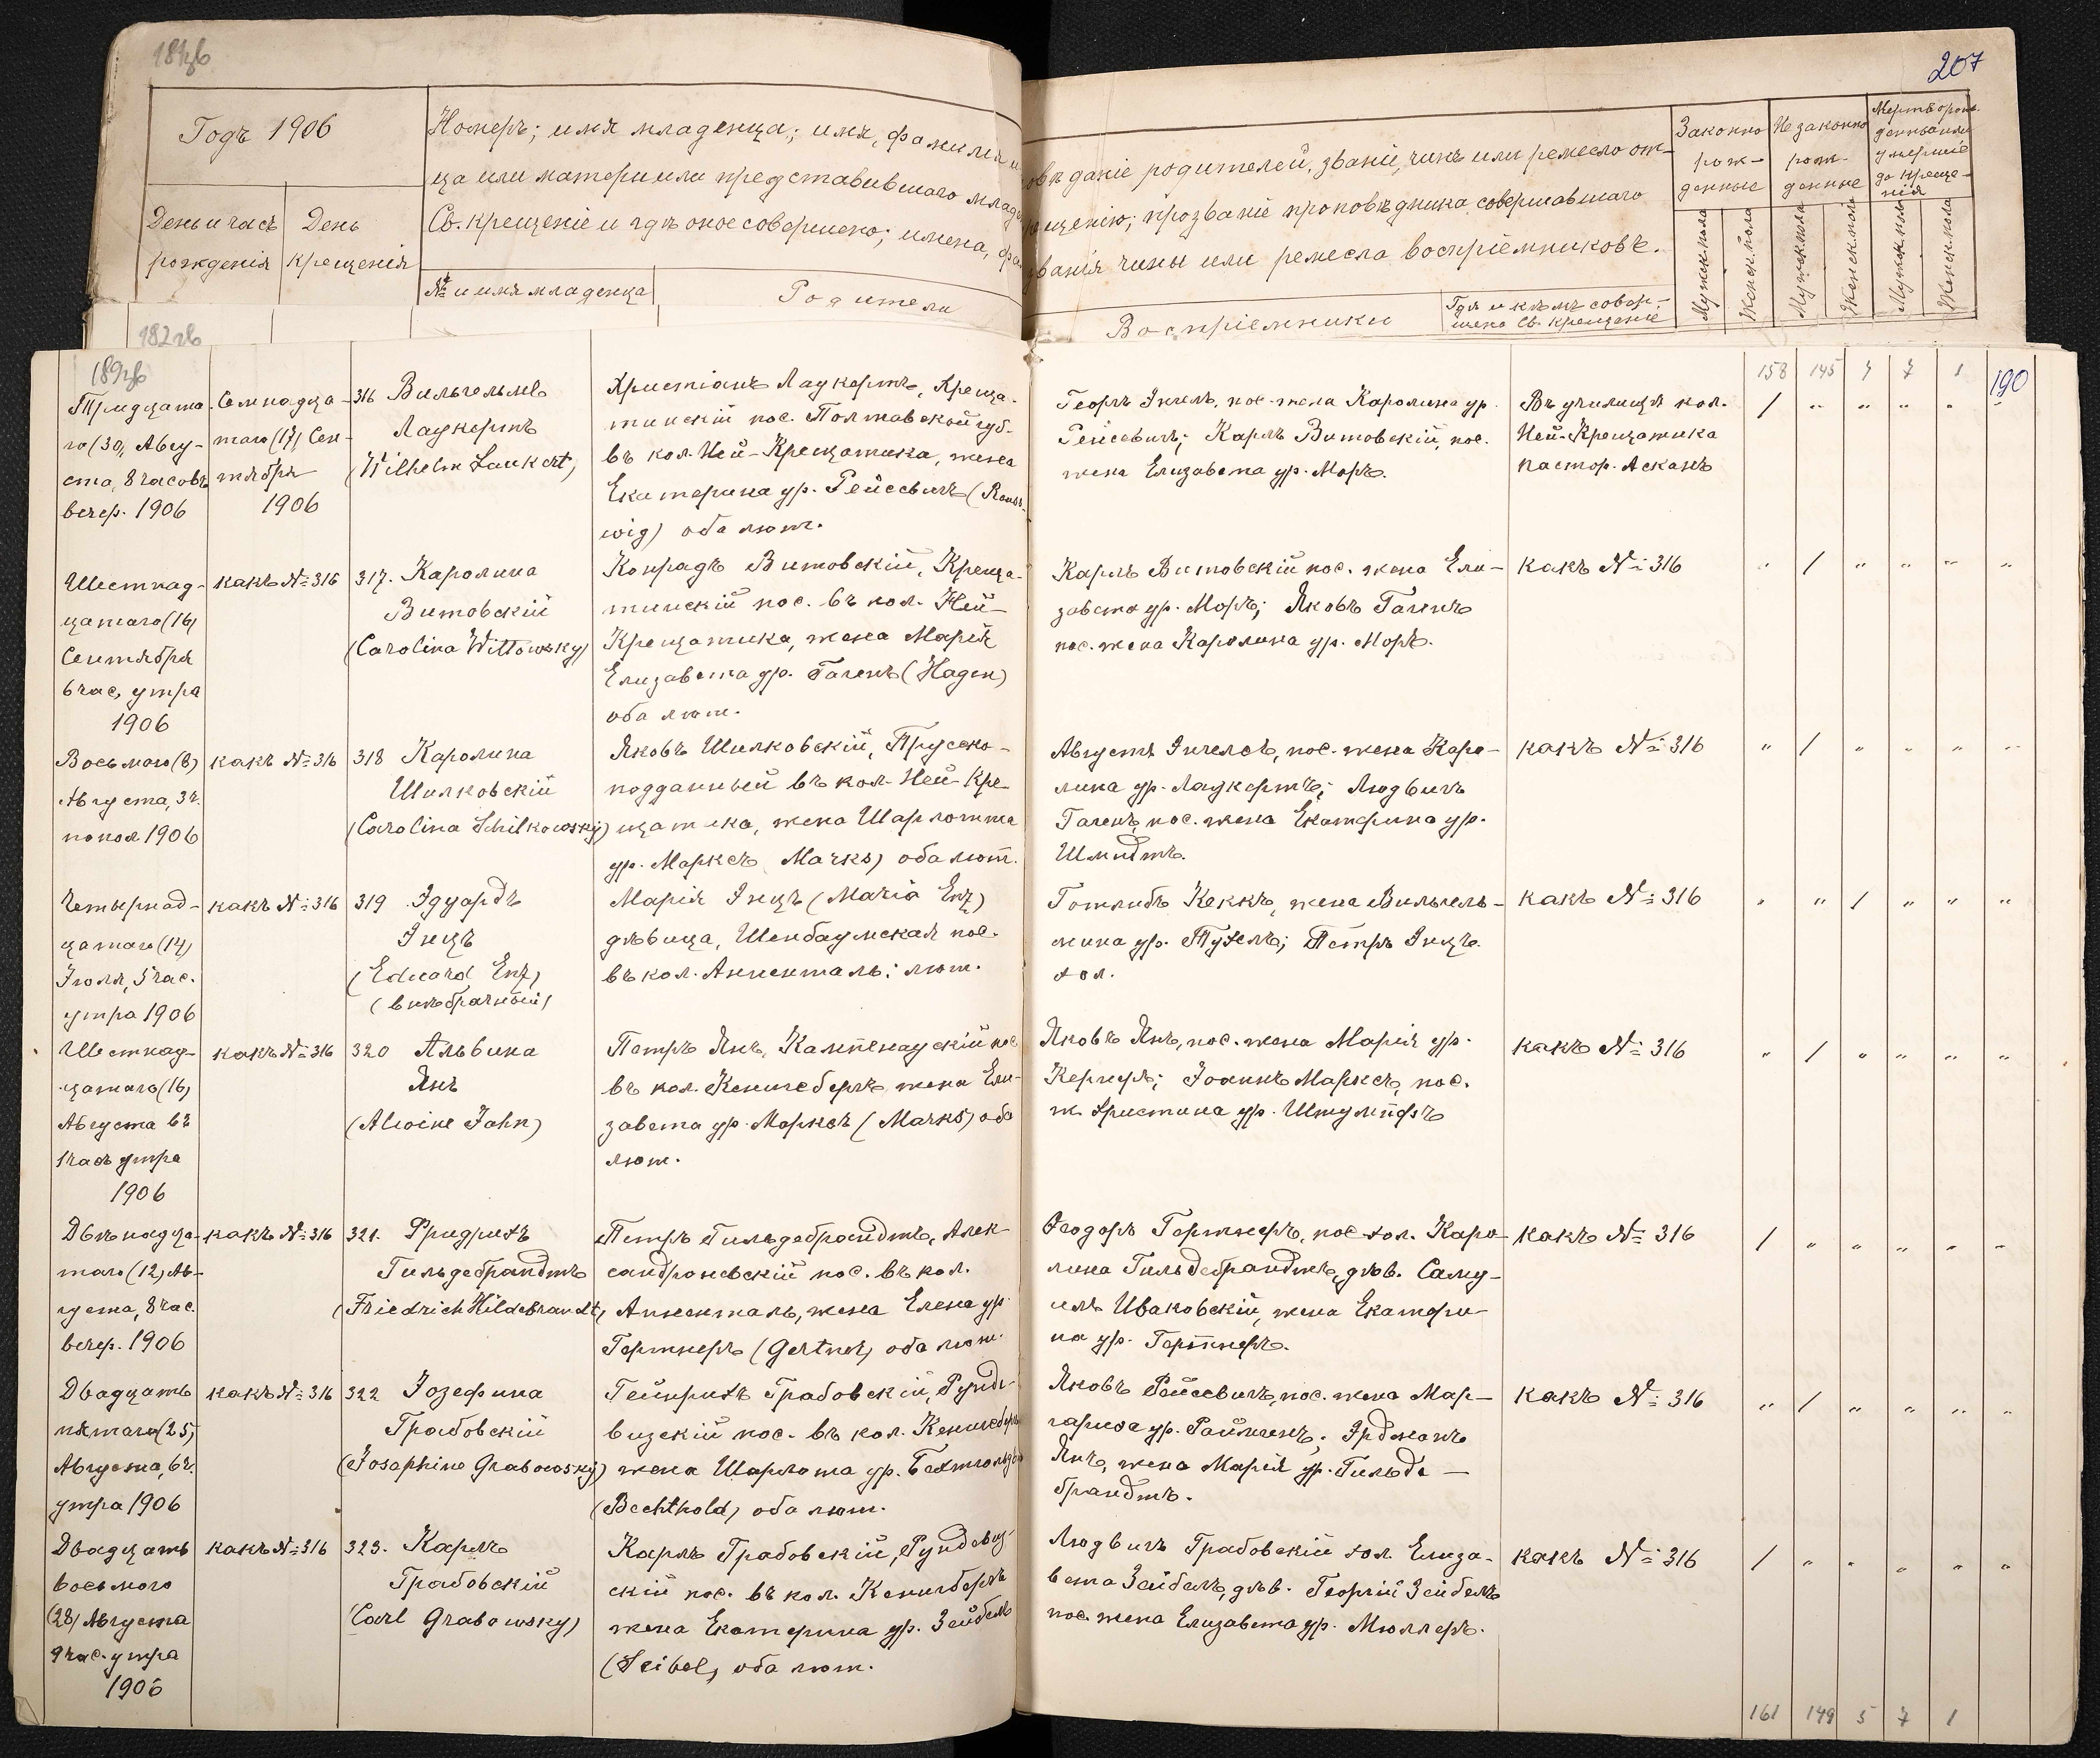 207
Годъ 1906
День и часъ рожденія
День крещенія
Номеръ; имя младенца; имя, фамилія
ца или матери или представившаго млад
Св. крещеніе и гдѣ оное совершено; имена,
№ и имя младенца
Родители
даніе родителей, званіе, чинъ или ремесло от-
прозваніе проповѣдника, совершавшаго
званія чины или ремесла воспріемниковъ.
Воспріемники
Гдѣ и кѣмъ совер-
шено Св. крещеніе
Законно
рож-
денные
Незаконно
рож-
денные
Мертворож-
денные или
умершіе
до креще-
нія
Мужск. пола
Женск. пола
Мужск. пола
Женск. пола
Мужск. пола
Женск. пола
158 145 7 1
190
Тридцата-
го (30) Авгу-
ста, 8 часовъ
вечер. 1906
Семнадца-
таго (17) Сен-
тября
1906
316 Вильгельмъ
Лаукертъ
(Wilhelm Laukert)
Христіанъ Лаукертъ, Креща-
тинскій пос. Полтавской губ.
въ кол. Ней-Крещатика, жена
Екатерина ур. Рейсевихъ
wig) оба лют.
Георгъ Энгель, пос. жена Каролина ур.
Рейсевихъ; Карлъ Витовскій, пос.
жена Елизавета ур. Моръ.
Въ училищѣ кол.
Ней-Крещатика
пастор. Асканъ
Шестнад-
цатаго (16)
Сентября
6 час. утра
1906
какъ № 316
317. Каролина
Витовскій
(Carolina Wittowsky)
Конрадъ Витовскій, Креща-
тинскій пос. въ кол. Ней-
Крещатика, жена Марія
Елизавета ур. Гагенъ (Hagen)
оба лют.
Карлъ Витовскій пос. жена Ели-
завета ур. Моръ; Яковъ Гагенъ
пос. жена Каролина ур. Моръ.
какъ № 316
Восьмого (8)
Августа, 3 ч.
попол 1906
какъ № 316
318 Каролина
Шилковскій
(Carolina Schilkowsky)
Яковъ Шилковскій, Прусско-
подданный въ кол. Ней-Кре-
щатика, жена Шарлотта
ур. Марксъ (Marks) оба лют.
Августъ Энгель, пос. жена Каро-
лина ур. Лаукертъ; Людвигъ
Гагенъ, пос. жена Екатерина ур.
Шмидтъ.
какъ № 316
Четырнад-
цатаго (14)
Іюля, 5 час.
утра 1906
какъ № 316
319 Эдуардъ
Энцъ
(Eduard Enz)
(внѣбрачный)
Марія Энцъ (Maria Enz)
дѣвица, Шенбаумская пос.
въ кол. Анненталь; лют.
Готлибъ Кеккъ, жена Вильгель-
мина ур. Петръ Энцъ
хол.
какъ № 316
Шестнад-
цатаго (16)
Августа въ
1 часъ утра
1906
какъ № 316
320 Альвина
Янъ
(Alwine Jahn)
Петръ Янъ, Кампенауский пос
въ кол. Кенигсбергъ, жена Ели-
завета ур. Марксъ (Marks) оба
лют.
Яковъ Янъ, пос. жена Марія ур.
Кернеръ; Іоаннъ Марксъ, пос.
ж. Христина ур. Штумпфъ
какъ № 316
Двѣнадца-
таго (12) Ав-
густа, 8 час.
вечер. 1906
какъ № 316
321. Фридрихъ
Гильдебрандтъ
(Friedrich Hildebrandt)
Петръ Гильдебрандтъ, Алек-
сандроневскій пос. въ кол.
Анненталь, жена Елена ур.
Гертнеръ (Gertner) оба лют.
Ѳеодоръ Гертнеръ, пос. хол. Каро-
лина Гильдебрандтъ, дѣв. Саму-
илъ Иваковскій, жена Екатери-
на ур. Гертнеръ.
какъ № 316
Двадцать
пятаго (25)
Августа, 6 ч.
утра 1906
какъ № 316
322 Іозефина
Грабовскій
(Josephine Grabowsky)
Гейнрихъ Грабовскій, Рунде-
визскій пос. въ кол. Кенигсбергъ
жена Шарлота ур. Бехтгольдъ
(Bechthold) оба лют.
Яковъ Рейсевихъ, пос. жена Мар-
гарита ур. Эрдманъ
Янъ, жена Марія ур. Гильде-
брандтъ.
какъ № 316
Двадцать
восьмого
(28) Августа
9 час. утра
1906
какъ № 316
323. Карлъ
Грабовскій
(Carl Grabowsky)
Карлъ Грабовскій, Рундевиз-
скій пос. въ кол. Кенигсбергъ
жена Екатерина ур. Зейбель
(Seibel) оба лют.
Людвигъ Грабовскій хол. Елиза-
вета Зейбель, дѣв. Георгій Зейбель
пос. жена Елизавета ур. Мюллеръ.
какъ № 316
161 149 5 7 1